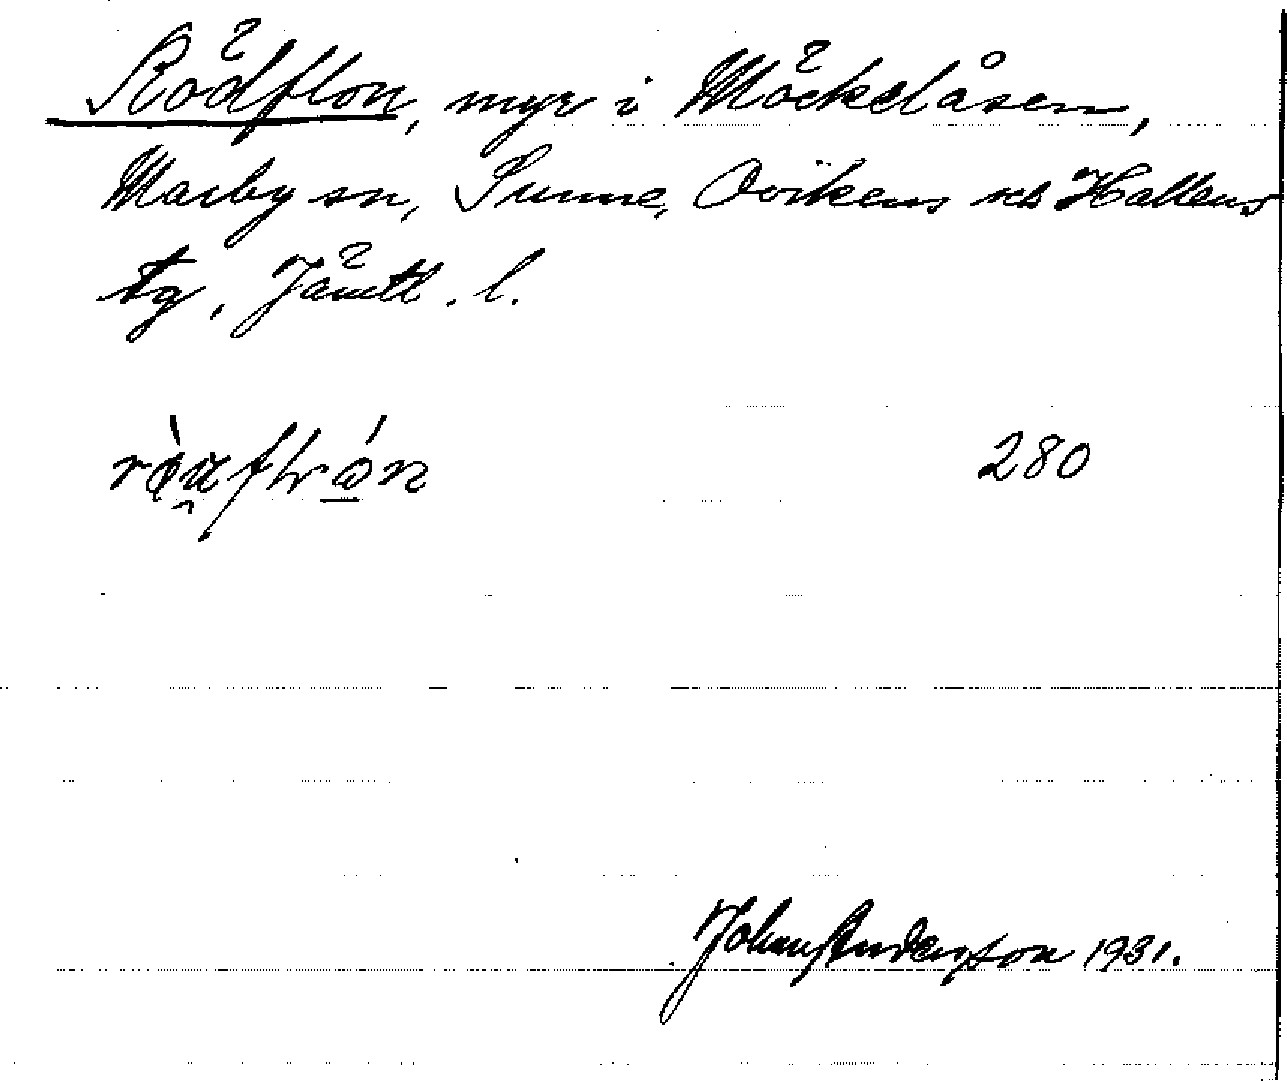 Rödflon, myr i Möckelåsen,
Marby sn, Sunne, Ovikens och Hallens
tg, Jämtl. l.
280
Johan Anderson 1931.